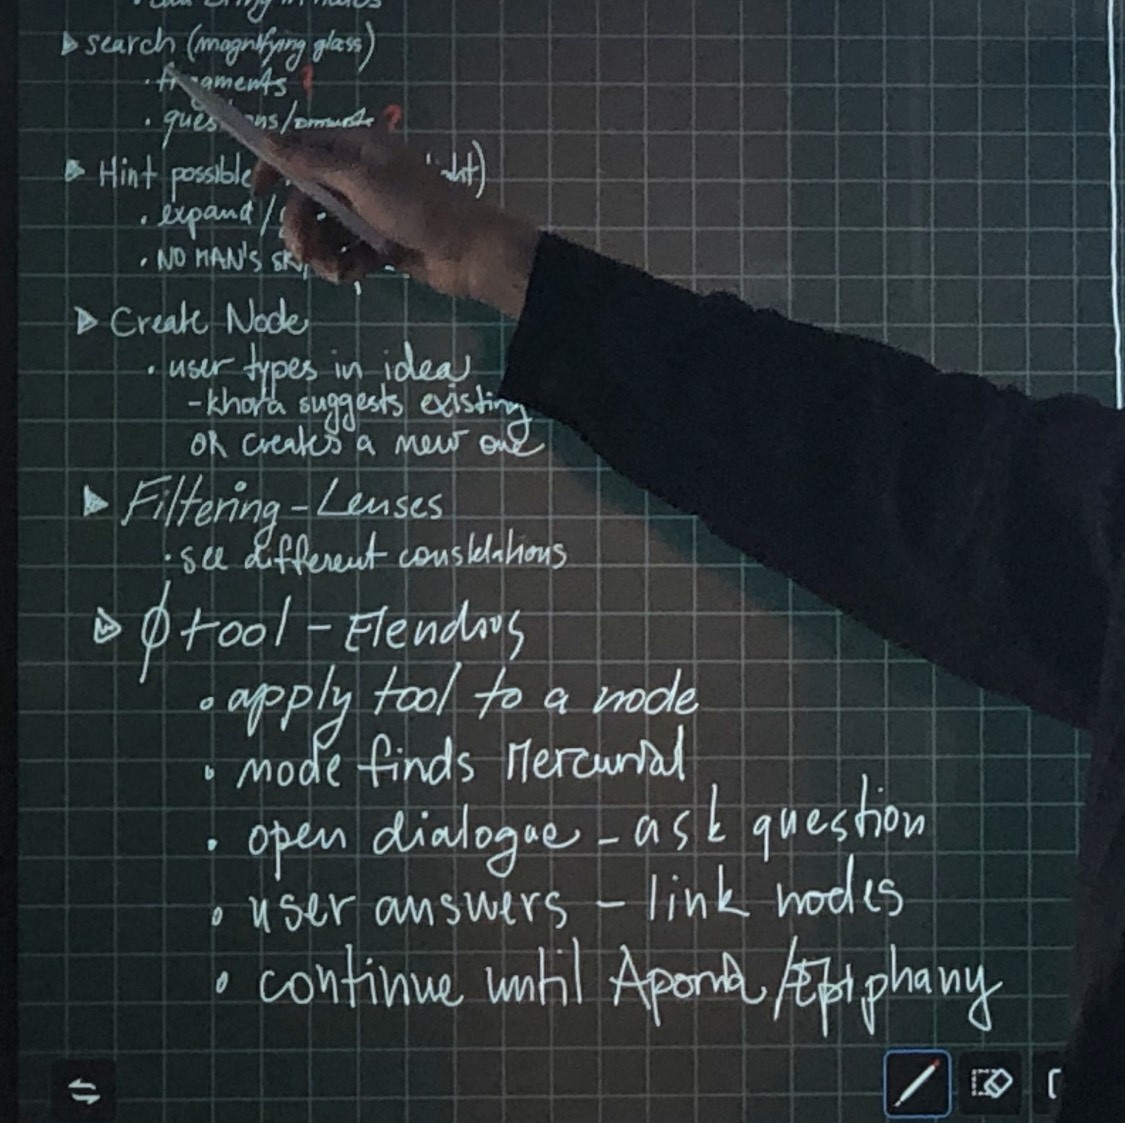 ▷ search (magnifying glass)
· fragments ?
· questions/ ?
▷ Hint possible
· expand/
· NO MAN'S
▷ Create Node
· user types in idea
- khora suggests existing
or creates a new one
▷ Filtering - Lenses
· see different constelations
▷ ϕ tool - Elenchus
· apply tool to a node
· node finds Mercurial
· open dialogue - ask question
· user answers - link nodes
· continue until Aporia / Epiphany